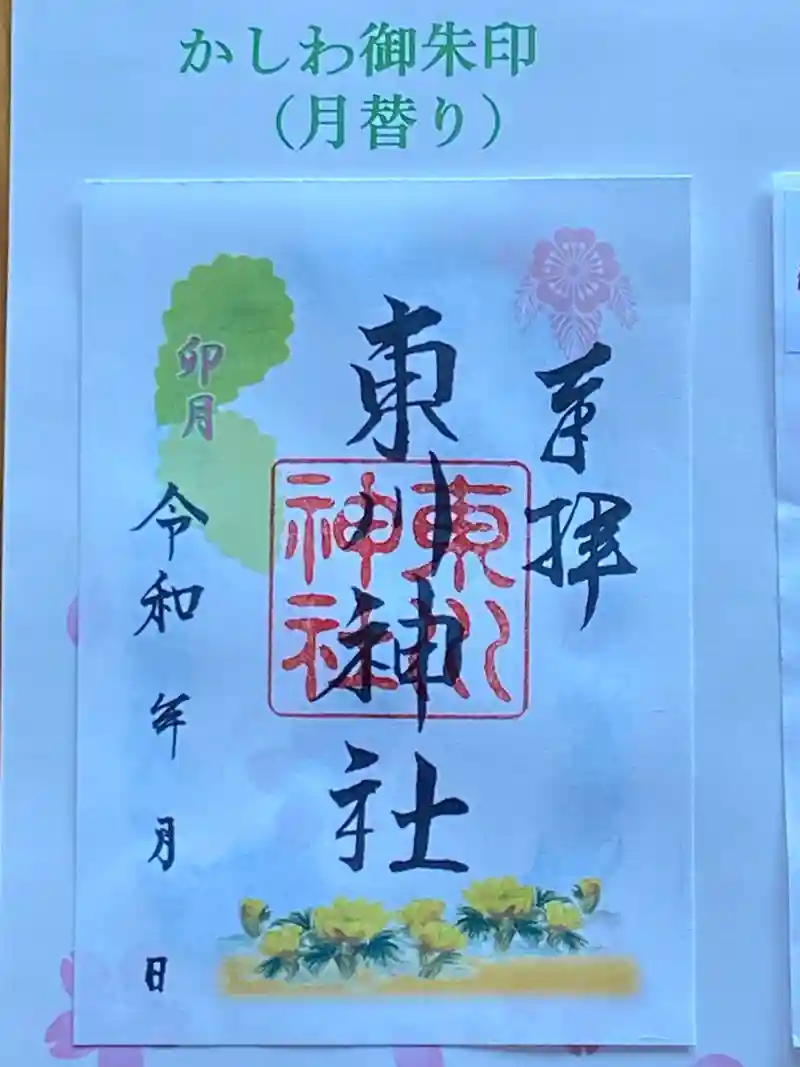 かしわ御朱印
（月替り）
奉拝
東川神社
東川
神社
卯月
令和 年 月 日